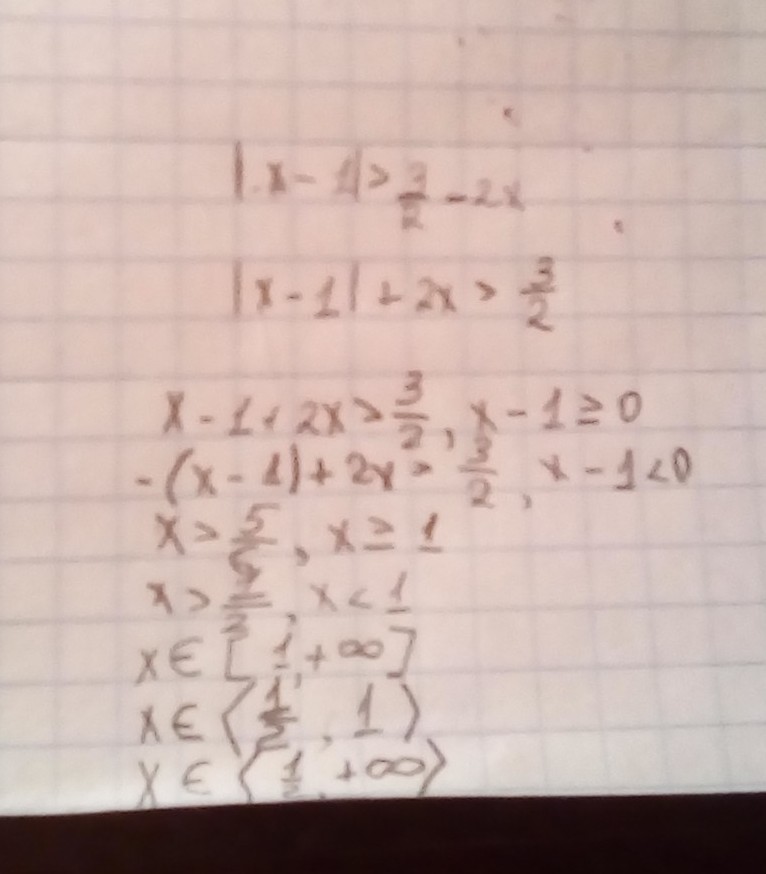 |x - 1| > 3/2 - 2x
|x - 1| + 2x > 3/2
x - 1 + 2x > 3/2, x - 1 ≥ 0
-(x - 1) + 2x > 3/2, x - 1 < 0
x > 5/6, x ≥ 1
x > 1/2, x < 1
x ∈ [1, +∞]
x ∈ ⟨1/2, 1⟩
x ∈ ⟨1/2, +∞⟩